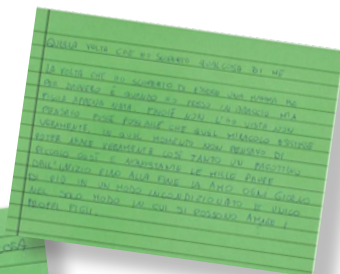 QUELLA VOLTA CHE HO SCOPERTO QUALCOSA DI ME
LA VOLTA CHE HO SCOPERTO DI ESSERE UNA MAMMA ME
PIÙ DAVVERO È QUANDO HO PRESO IN BRACCIO MIA
FIGLIA APPENA NATA. FINCHÈ NON L'HO VISTA NON
PENSAVO FOSSE POSSIBILE CHE QUEL MIRACOLO ESISTESSE
VERAMENTE. IN QUEL MOMENTO NON PENSAVO DI
POTER AMARE VERAMENTE COSÌ TANTO UN FAGOTTINO
PICCOLO COSÌ E NONOSTANTE LE MILLE PAURE
DALL'INIZIO FINO ALLA FINE LA AMO OGNI GIORNO
DI PIÙ IN UN MODO INCONDIZIONATO E UNICO
NEL SOLO MODO IN CUI SI POSSONO AMARE I
PROPRI FIGLI.